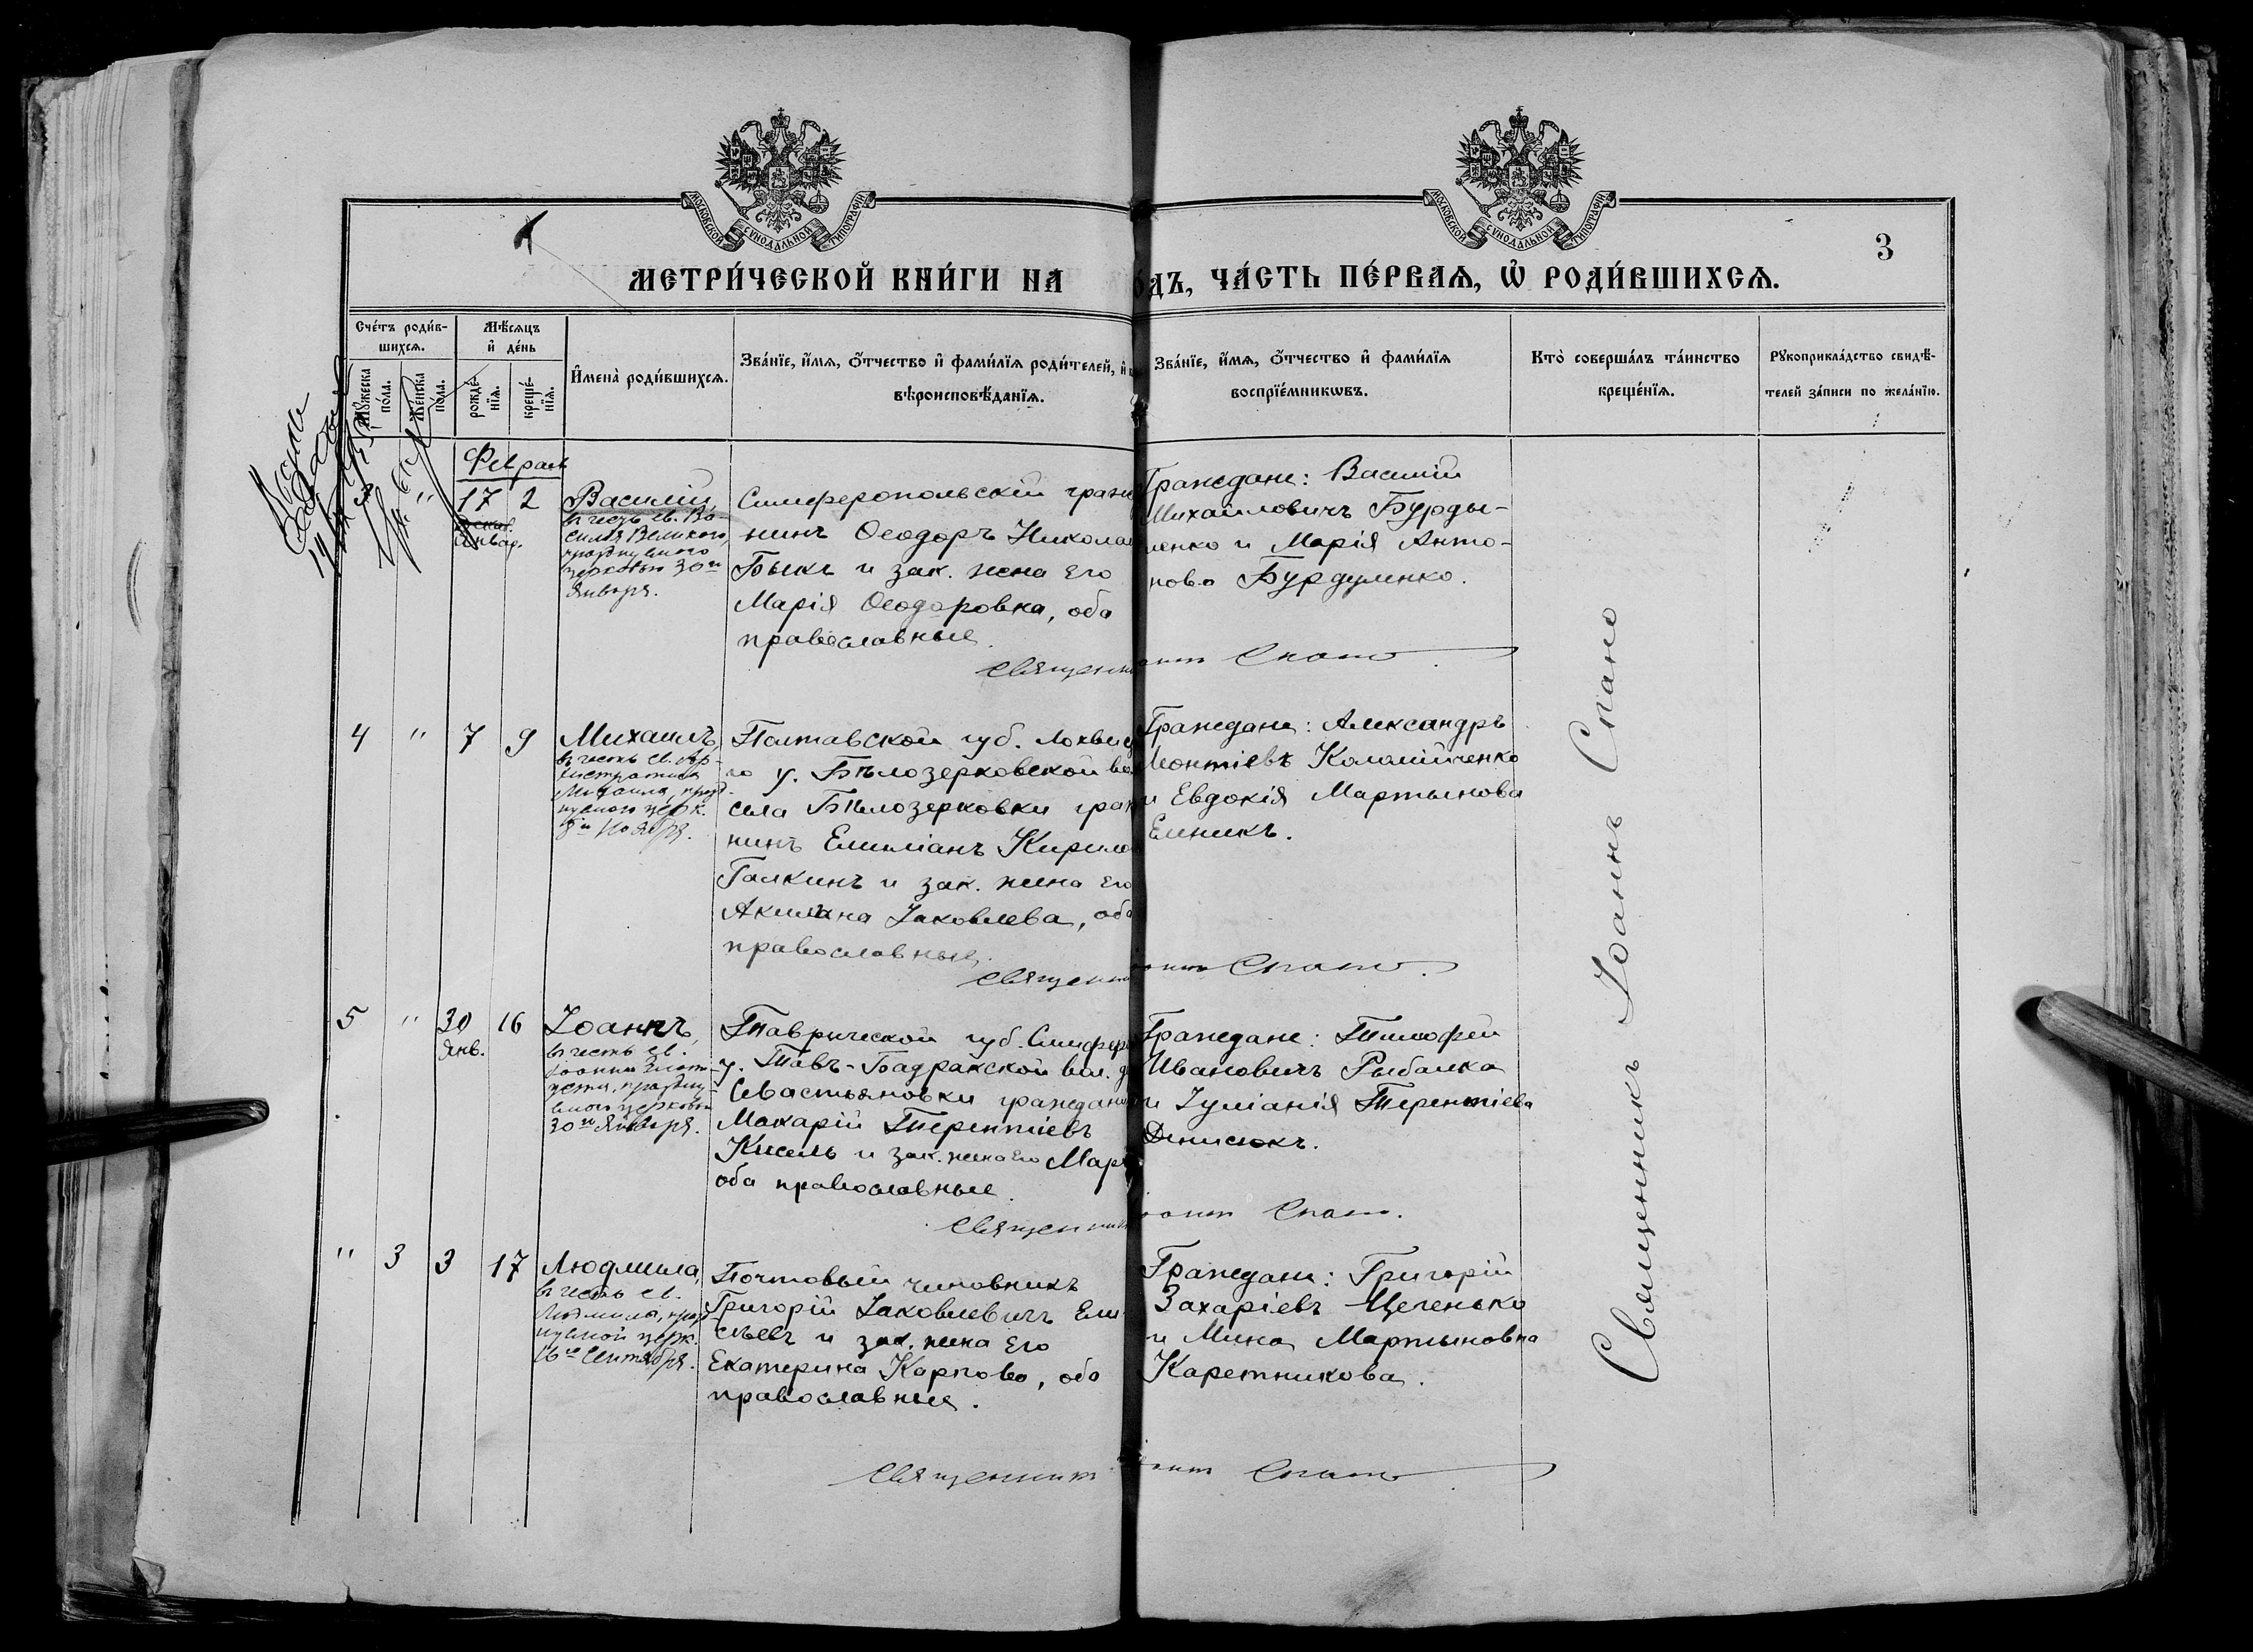 МОСКОВСКОЙ СУНОДАЛЬНОЙ ТИПОГРАФІИ
МОСКОВСКОЙ СУНОДАЛЬНОЙ ТИПОГРАФІИ
3
МЕТРИ́ЧЕСКОЙ КНИ́ГИ НА
о́дъ, ЧА́СТЬ ПЕ́РВАѦ, Ѿ РОДИ́ВШИХСѦ.
Сче́тъ роди́в-
шихсѧ.
Мꙋ́жеска по́ла.
Же́нска по́ла.
Мѣ́сѧцъ
и҆ де́нь
рожде́-
нїѧ.
креще́-
нїѧ.
И҆мена̀ роди́вшихсѧ.
Зва́нїе, и҆́мѧ, ѻ҆́тчество и҆ фами́лїѧ роди́телей, и҆
вѣроисповѣ́данїѧ.
Зва́нїе, и҆́мѧ, ѻ҆́тчество и҆ фами́лїѧ
воспрїе́мникѡвъ.
Кто̀ соверша́лъ та́инство
креще́нїѧ.
Рꙋкоприкла́дство свидѣ́-
телей за́писи по жела́нїю.
17 2
Василій,
въ честь св. Ва-
силія Великого,
празднуемого
церковью 30го
Января.
Симферопольскій гражд
нинъ Ѳеодоръ Никола
Быкъ и зак. жена его
Марія Ѳеодоровна, оба
православные.
Граждане: Василій
Михайловичъ Бурды-
ленко и Марія Анто-
нова Бурдуленко.
Священн оаннъ Спано
4 " 7 9
Михаилъ,
въ честь св. Ар-
хистратига
Михаила, празд-
нуемого церк.
8го Ноября.
Полтавской губ. Лохвиц
го у. Бѣлозерковской во
села Бѣлозерковки граж
нинъ Емиліанъ Кирило
Галкинъ и зак. жена его
Акилина Іаковлева, оба
православные.
Граждане: Александръ
Леонтіевъ Коломійченко
и Евдокія Мартынова
Еликъ.
Священн оаннъ Спано.
5 " 30 16
Янв.
Іоаннъ,
въ честь св.
Іоанна Злато-
уста, праздну-
емого церковью
30го Января.
Таврической губ. Симферо
у. Тавъ-Бадракской вол. д
Севастьяновки граждани
Макарій Терентіевъ
Кисель и зак. жена его Мар
оба православные.
Граждане: Тимофей
Ивановичъ Рыбалка
и Іуліанія Терентіева
Денисюкъ.
Священник оаннъ Спано.
" 3 3 17
Людмила,
въ честь св.
Людмилы, празд-
нуемой церк.
16го Сентября.
Почтовый чиновникъ
Григорій Іаковлевичъ Ели-
сѣевъ и зак. жена его
Екатерина Карпова, оба
православные.
Граждане: Григорій
Захаріевъ Щеченько
и Мина Мартыновна
Каретникова.
Священникъ оаннъ Спано
Священникъ Іоаннъ Спано